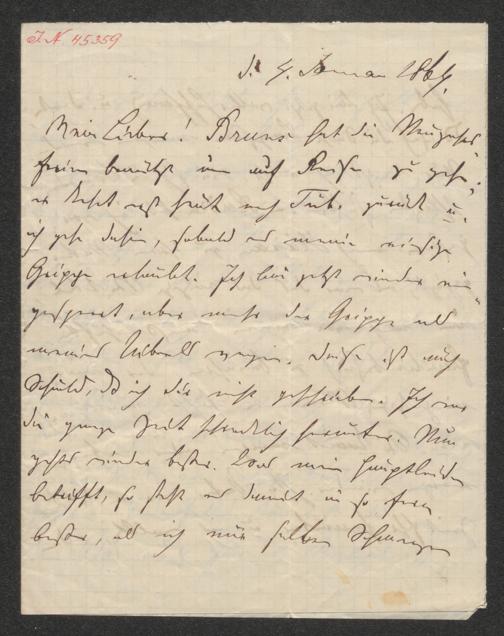 I.N. 45359
d. 4. Januar 1864.
Mein Lieber! Bruns hat die Neujahrs
ferien benützt um auf Reisen zu gehen,
er kehrt erst heute nach Tüb. zurück u.
ich gehe dahin, sobald es meine
Grippe erlaubt. Ich bin jetzt wieder ein
gesperrt, aber mehr der Grippe als
meines Übels wegen. Diese ist auch
Schuld, daß ich dir nicht geschrieben. Ich war
die ganze Zeit schändlich herunter. Nun
gehts wieder besser. Was mein Hauptleiden
betrifft, so steht es damit in so fern
besser, als ich nur selten Schmerzen